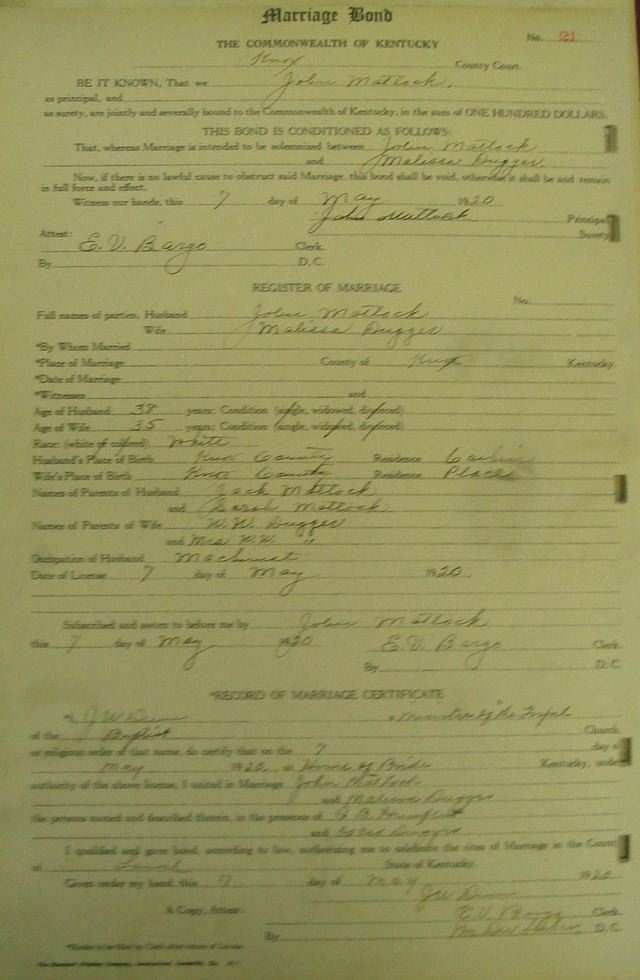 Marriage Bond
No. 21
THE COMMONWEALTH OF KENTUCKY
Knox County Court.
BE IT KNOWN, That we John Matlock,
as principal, and
as surety, are jointly and severally bound to the Commonwealth of Kentucky, in the sum of ONE HUNDRED DOLLARS.
THIS BOND IS CONDITIONED AS FOLLOWS:
That, whereas Marriage is intended to be solemnized between John Matlock
and Malissa Dugger
Now, if there is no lawful cause to obstruct said Marriage, this bond shall be void, otherwise it shall be and remain
in full force and effect.
Witness our hands, this 7 day of May 1920
John Matlock Principal
Surety
Attest: E. V. Bargo Clerk.
By D. C.
REGISTER OF MARRIAGE
No.
Full names of parties, Husband John Matlock
Wife Malissa Dugger
*By Whom Married
*Place of Marriage County of Knox Kentucky.
*Date of Marriage
*Witnesses and
Age of Husband 38 years; Condition (single, widowed, divorced)
Age of Wife 35 years; Condition (single, widowed, divorced)
Race: (white or colored) White
Husband's Place of Birth Knox County Residence
Wife's Place of Birth Knox County Residence Place
Names of Parents of Husband Jack Matlock
and Sarah Matlock
Names of Parents of Wife W. W. Dugger
and Mrs W. W. "
Occupation of Husband Machinist
Date of License 7 day of May 1920.
Subscribed and sworn to before me by John Matlock
this 7 day of May 1920 E. V. Bargo Clerk
By D. C.
*RECORD OF MARRIAGE CERTIFICATE
*I, J W a Minister of the Gospel
of the Baptist Church,
or religious order of that name, do certify that on the 7 day of
May 1920, at Home of Bride Kentucky, under
authority of the above license, I united in Marriage John Matlock
and Malissa Dugger
the persons named and described therein, in the presence of G. B.
and Dugger
I qualified and gave bond, according to law, authorizing me to celebrate the rites of Marriage in the County
of State of Kentucky.
Given under my hand, this 7 day of May 1920
J W
A Copy, Attest: E. V. Bargo Clerk.
By D. C.